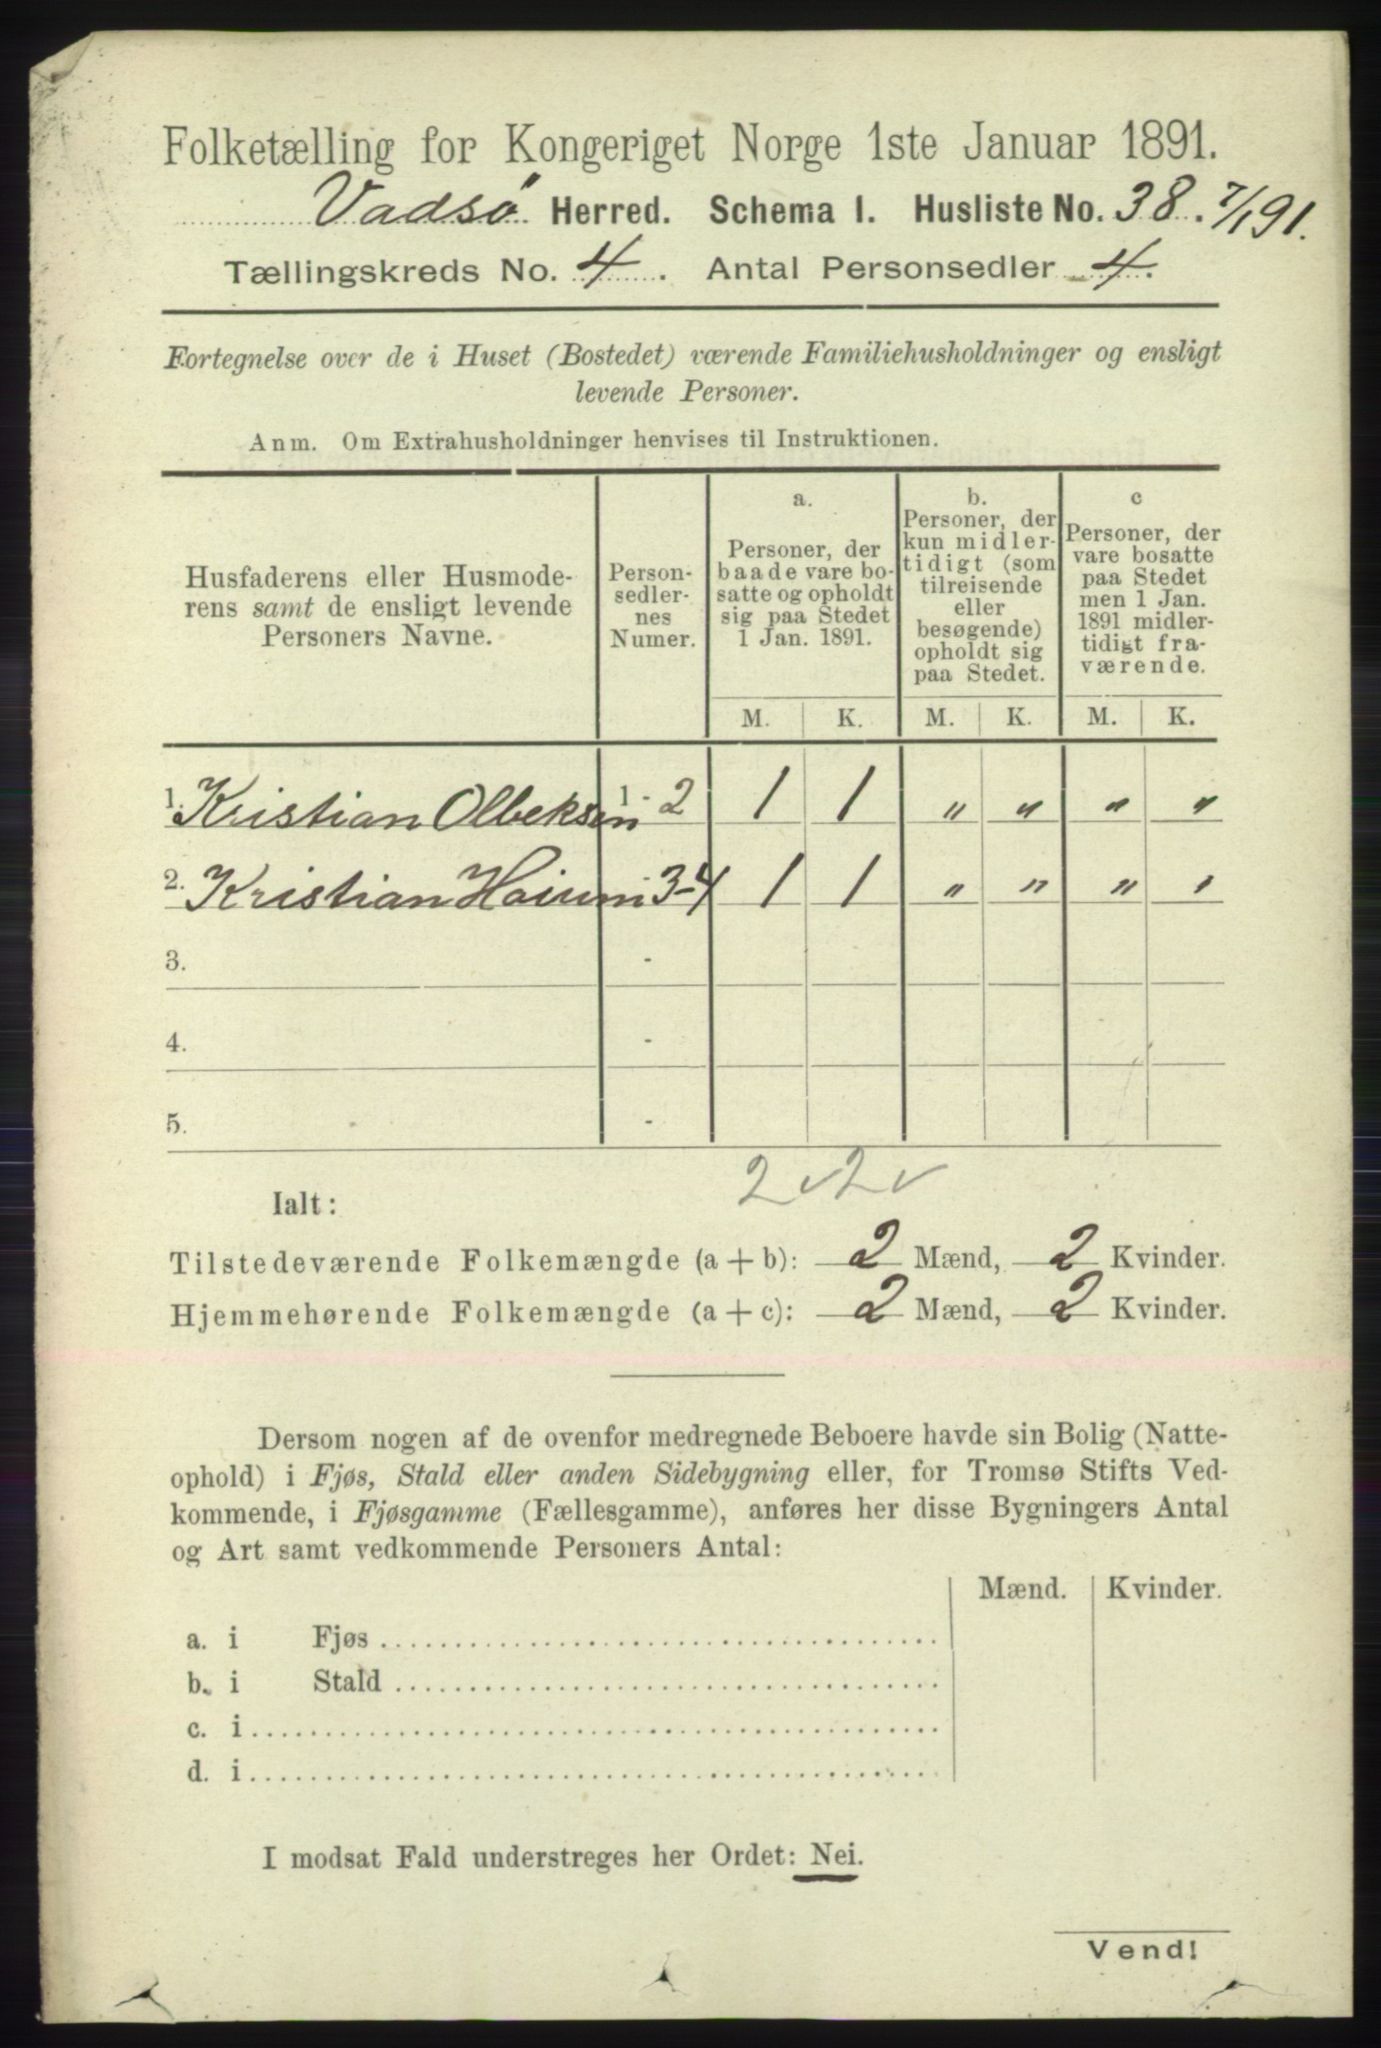 Folketælling for Kongeriget Norge 1ste Januar 1891.
Vadsø Herred. Schema I. Husliste No. 38. 7/1 91.
Tællingskreds No. 4. Antal Personsedler 4.
Fortegnelse over de i Huset (Bostedet) værende Familiehusholdninger og ensligt
levende Personer.
Anm. Om Extrahusholdninger henvises til Instruktionen.
Husfaderens eller Husmode-
rens samt de ensligt levende
Personers Navne.
Person-
sedler-
nes
Numer.
a.
Personer, der
baade vare bo-
satte og opholdt
sig paa Stedet
1 Jan. 1891.
b.
Personer, der
kun midler-
tidigt (som
tilreisende
eller
besøgende)
opholdt sig
paa Stedet.
c
Personer, der
vare bosatte
paa Stedet
men 1 Jan.
1891 midler-
tidigt fra-
værende.
M. K. M. K. M. K.
1. Kristian Olbeksen 1 - 2 1 1 " " " "
2. Kristian 3-4 1 1 " " " "
3. -
4. -
5. -
2 v 2 v
Ialt:
Tilstedeværende Folkemængde (a + b): 2 Mænd, 2 Kvinder.
Hjemmehørende Folkemængde (a + c): 2 Mænd, 2 Kvinder.
Dersom nogen af de ovenfor medregnede Beboere havde sin Bolig (Natte-
ophold) i Fjøs, Stald eller anden Sidebygning eller, for Tromsø Stifts Ved-
kommende, i Fjøsgamme (Fællesgamme), anføres her disse Bygningers Antal
og Art samt vedkommende Personers Antal:
Mænd. Kvinder.
a. i Fjøs
b. i Stald
c. i
d. i
I modsat Fald understreges her Ordet: Nei.
Vend!